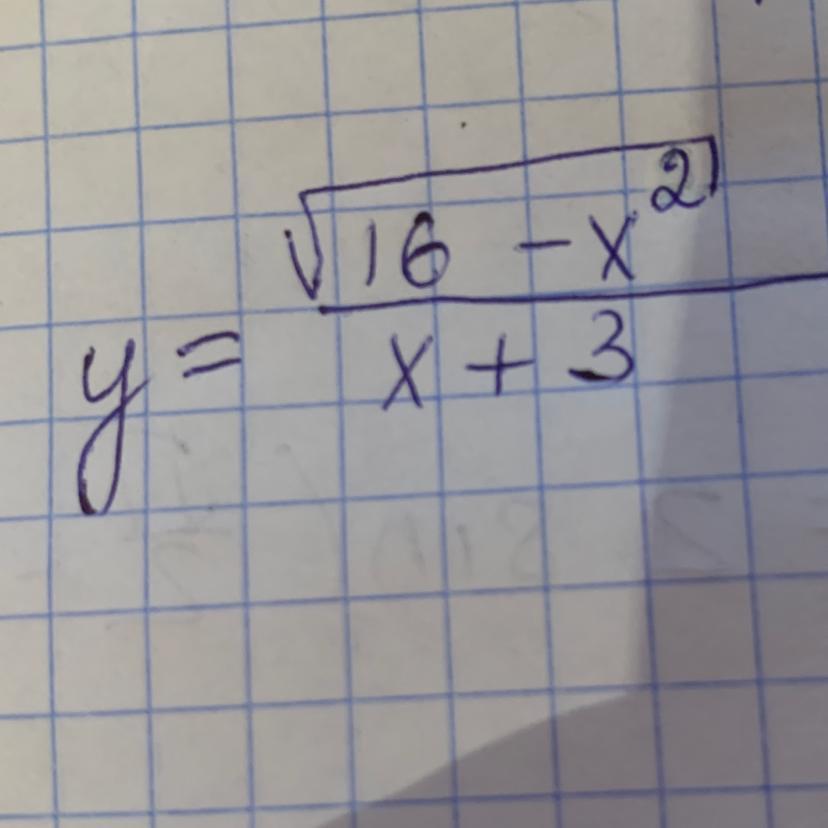 y = √(16 - x²) / (x + 3)